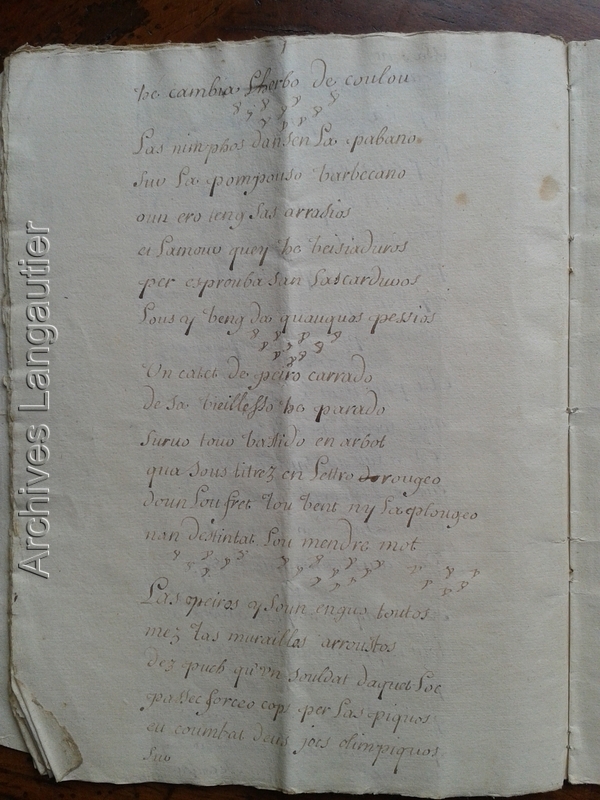 he cambia Lherbo de coulou
Las nimphos dansen La pabano
sur La pompouso barbecano
oun ero teng sas arrasios
et Lamour quey he beisiaduros
per esprouba san Lascarduos
Lous y beng da quauquos pessios
Un catet de peiro carrado
de sa bieillesso he parado
suruo tour bastido en arbot
qua sous titrez en Lettro rougeo
doun Lou fret Lou bent ny La plougeo
non destintat Lou mendre mot
Las peiros y soun enguo toutos
mez Las muraillos arroustos
dez pueh qu'un souldat daquet Loc
passec forceo cops per Las piquos
eu coumbat deus jocs olimpiquos
sur
Archives Langautier